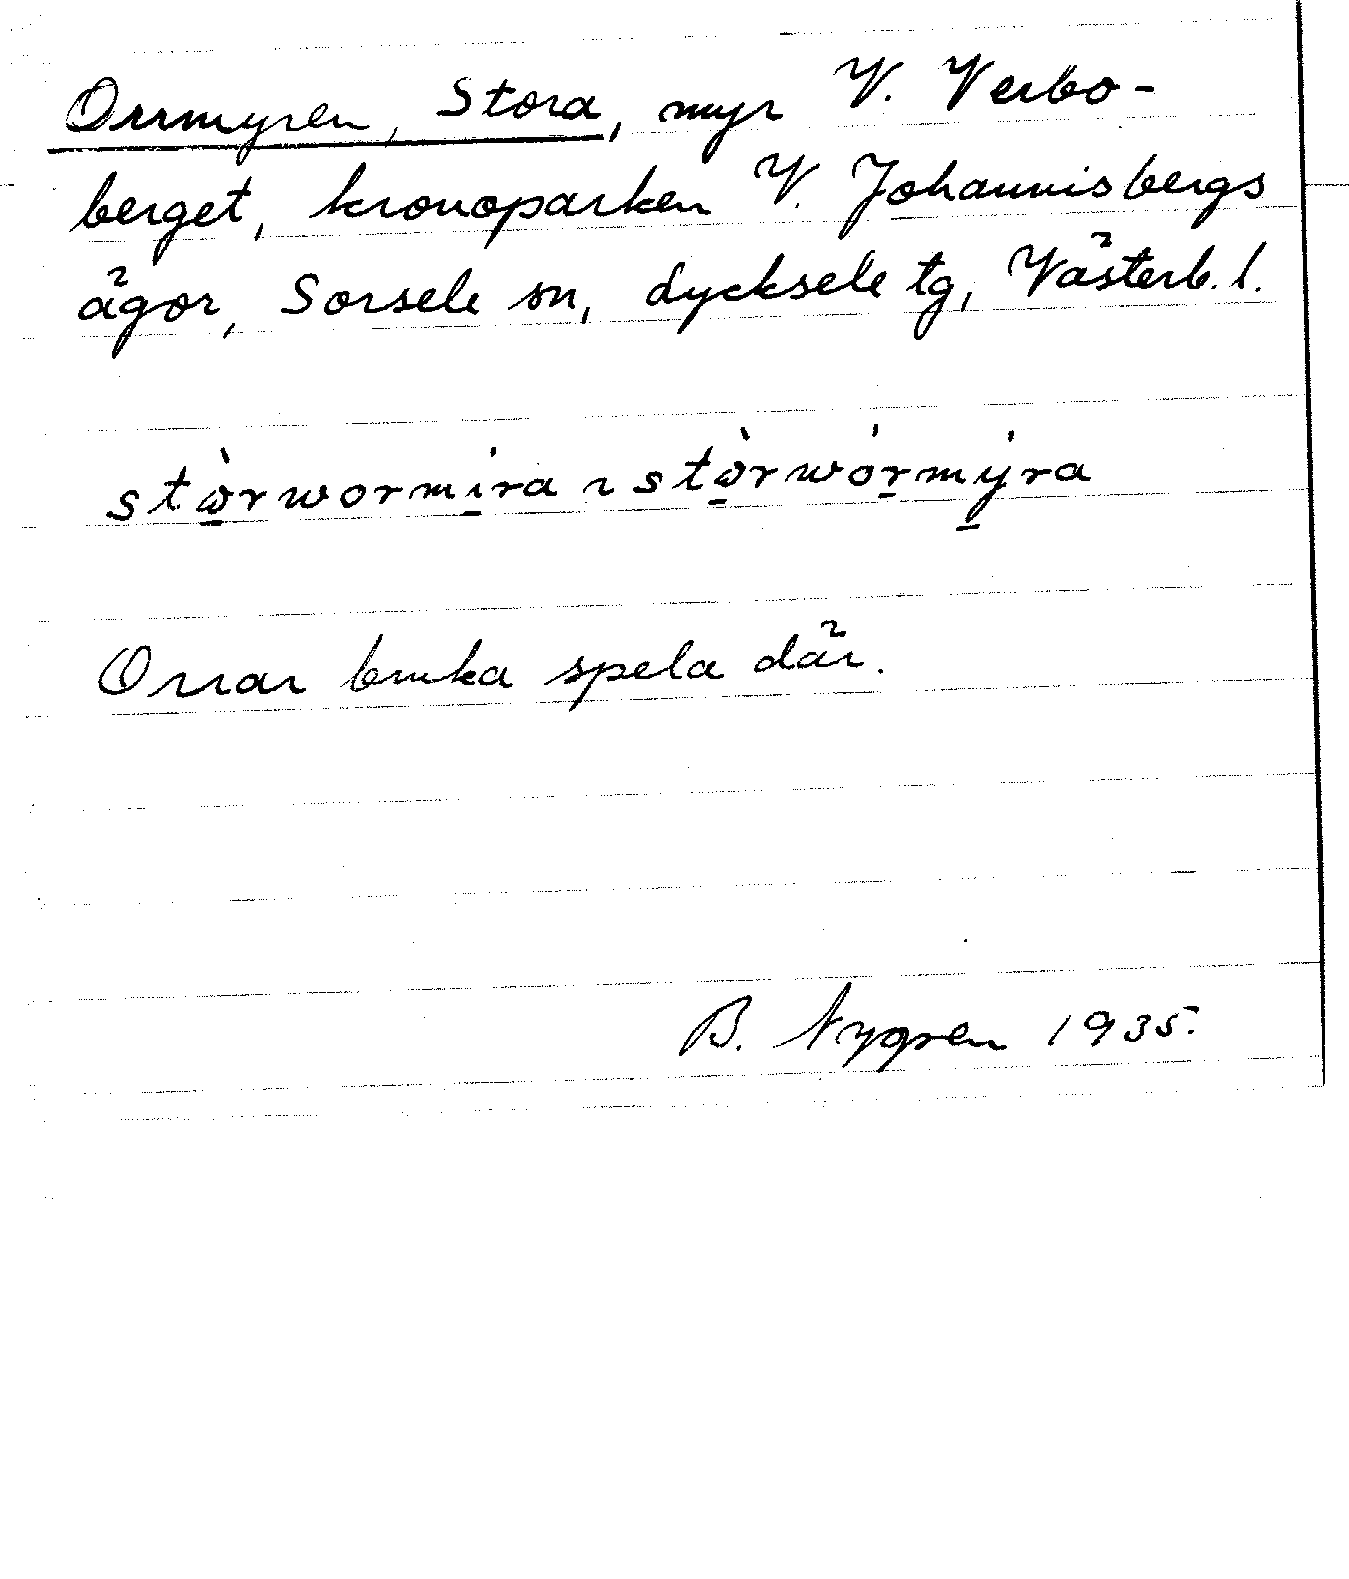 Orrmyren, Stora, myr V. Verbo-
berget, kronoparken V. Johannisbergs
ägor, Sorsele sn, Lycksele tg, Västerb. l.
stò̱rwormi̱ra ~ stò̱rwóṟmý̱ra
Orrar bruka spela där.
B. Nygren 1935.